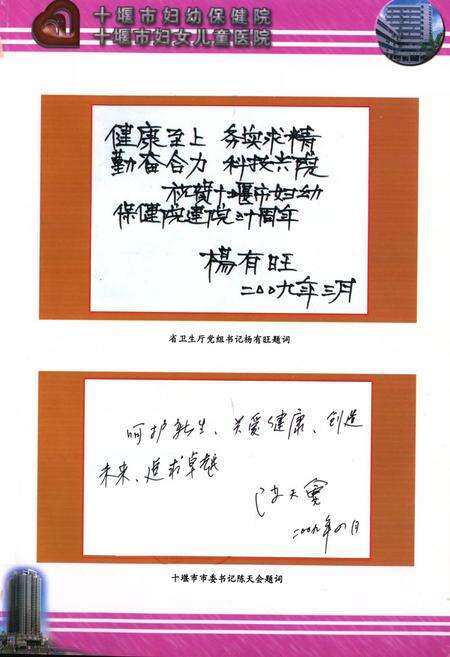 十堰市妇幼保健院
十堰市妇女儿童医院
健康至上 务实求精
勤奋合力 科技兴院
祝贺十堰市妇幼
保健院建院三十周年
楊有旺
二〇〇九年三月
省卫生厅党组书记杨有旺题词
呵护新生、关爱健康、创造
未来、追求卓越
陈天会
二〇〇九年
十堰市市委书记陈天会题词